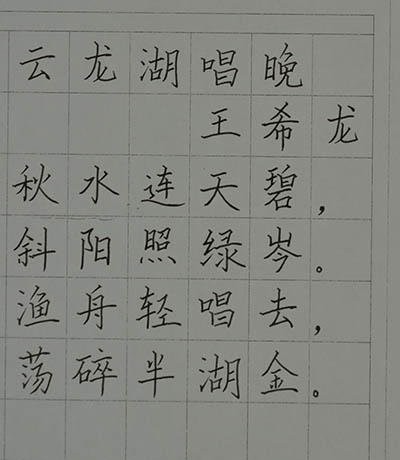 云龙湖唱晚
王希龙
秋水连天碧，
斜阳照绿岑。
渔舟轻唱去，
荡碎半湖金。